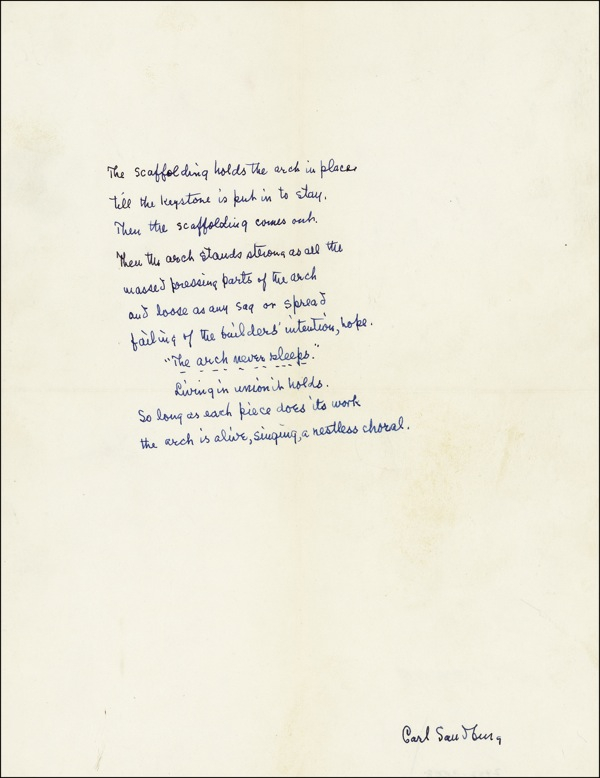 The scaffolding holds the arch in place
till the keystone is put in to stay.
Then the scaffolding comes out.
Then the arch stands strong as all the
massed pressing parts of the arch
and loose as any sag or spread
failing of the builders' intention, hope.
"The arch never sleeps."
Living in union it holds.
So long as each piece does its work
the arch is alive, singing, a restless choral.
Carl Sandburg